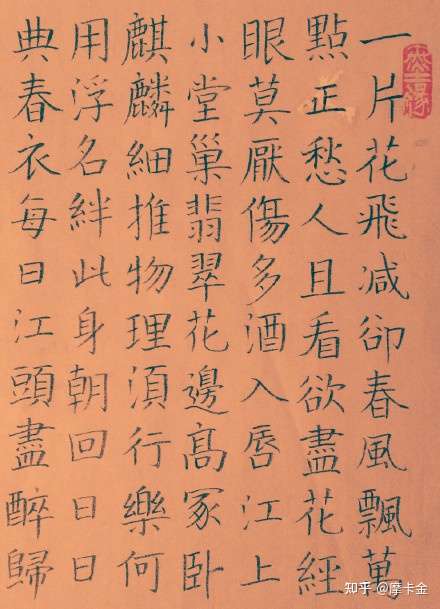 一片花飛减卻春風飄萬
點正愁人且看欲盡花經
眼莫厭傷多酒入唇江上
小堂巢翡翠花邊髙冢卧
麒麟細推物理須行樂何
用浮名絆此身朝回日日
典春衣每日江頭盡醉歸
知乎 @摩卡金